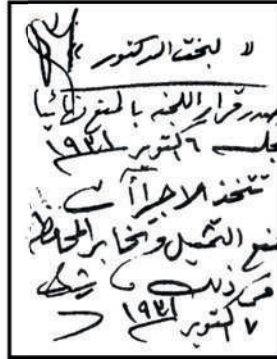 لا لبخت الدكتور
صدر قرار اللجنه بالمنع نهائيا
جلسه ٦ اكتوبر ١٩٣١
تتخذ الاجراآت
منع التمثيل وتخابر المحافظه
في ذلك
٧ اكتوبر ١٩٣١